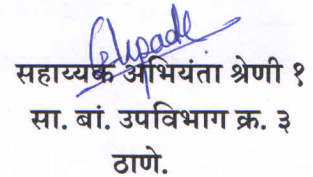 सहाय्यक अभियंता श्रेणी १
सा. बां. उपविभाग क्र. ३
ठाणे.